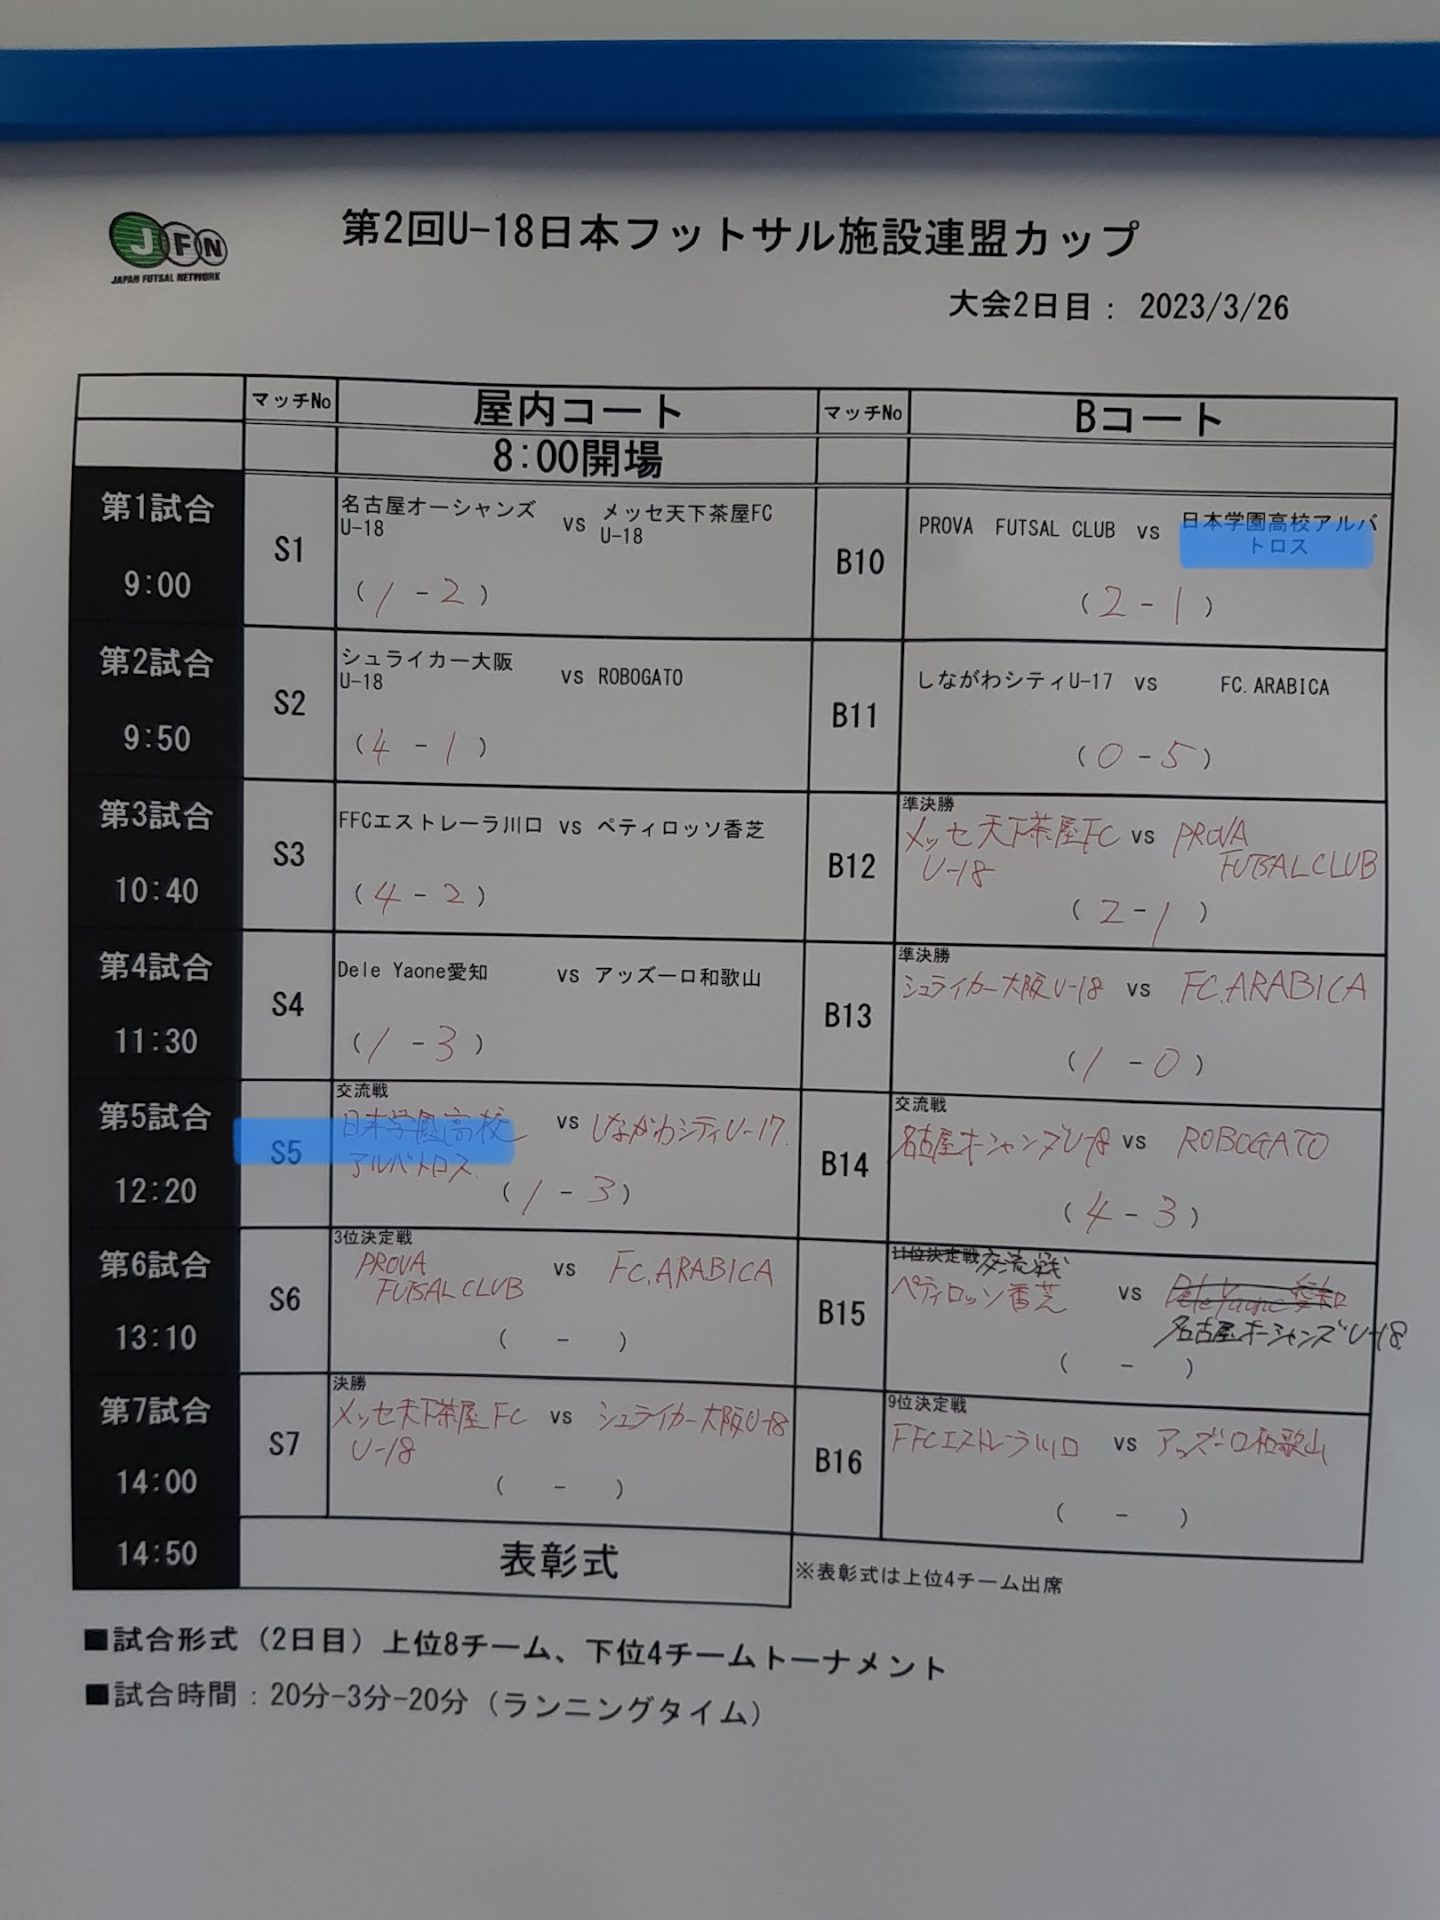 JFN
JAPAN FUTSAL NETWORK
第2回U-18日本フットサル施設連盟カップ
大会2日目： 2023/3/26
マッチNo 屋内コート マッチNo Bコート
8:00開場
第1試合
9:00
S1
名古屋オーシャンズ
U-18
vs
メッセ天下茶屋FC
U-18
( 1 - 2 )
B10
PROVA FUTSAL CLUB vs 日本学園高校アルバ
トロス
( 2 - 1 )
第2試合
9:50
S2
シュライカー大阪
U-18
vs ROBOGATO
( 4 - 1 )
B11
しながわシティU-17 vs FC.ARABICA
( 0 - 5 )
第3試合
10:40
S3
FFCエストレーラ川口 vs ペティロッソ香芝
( 4 - 2 )
B12
準決勝
メッセ天下茶屋FC
U-18
vs
PROVA
FUTSAL CLUB
( 2 - 1 )
第4試合
11:30
S4
Dele Yaone愛知 vs アッズーロ和歌山
( 1 - 3 )
B13
準決勝
シュライカー大阪U-18 vs FC.ARABICA
( 1 - 0 )
第5試合
12:20
S5
交流戦
日本学園高校
アルバトロス
vs しながわシティU-17
( 1 - 3 )
B14
交流戦
名古屋オーシャンズU-18 vs ROBOGATO
( 4 - 3 )
第6試合
13:10
S6
3位決定戦
PROVA
FUTSAL CLUB
vs FC.ARABICA
( - )
B15
11位決定戦 交流戦
ペティロッソ香芝 vs Dele Yaone 愛知
名古屋オーシャンズU-18
( - )
第7試合
14:00
S7
決勝
メッセ天下茶屋FC
U-18
vs シュライカー大阪U-18
( - )
B16
9位決定戦
FFCエストレーラ川口 vs アッズーロ和歌山
( - )
14:50
表彰式
※表彰式は上位4チーム出席
■試合形式（2日目）上位8チーム、下位4チームトーナメント
■試合時間：20分-3分-20分（ランニングタイム）